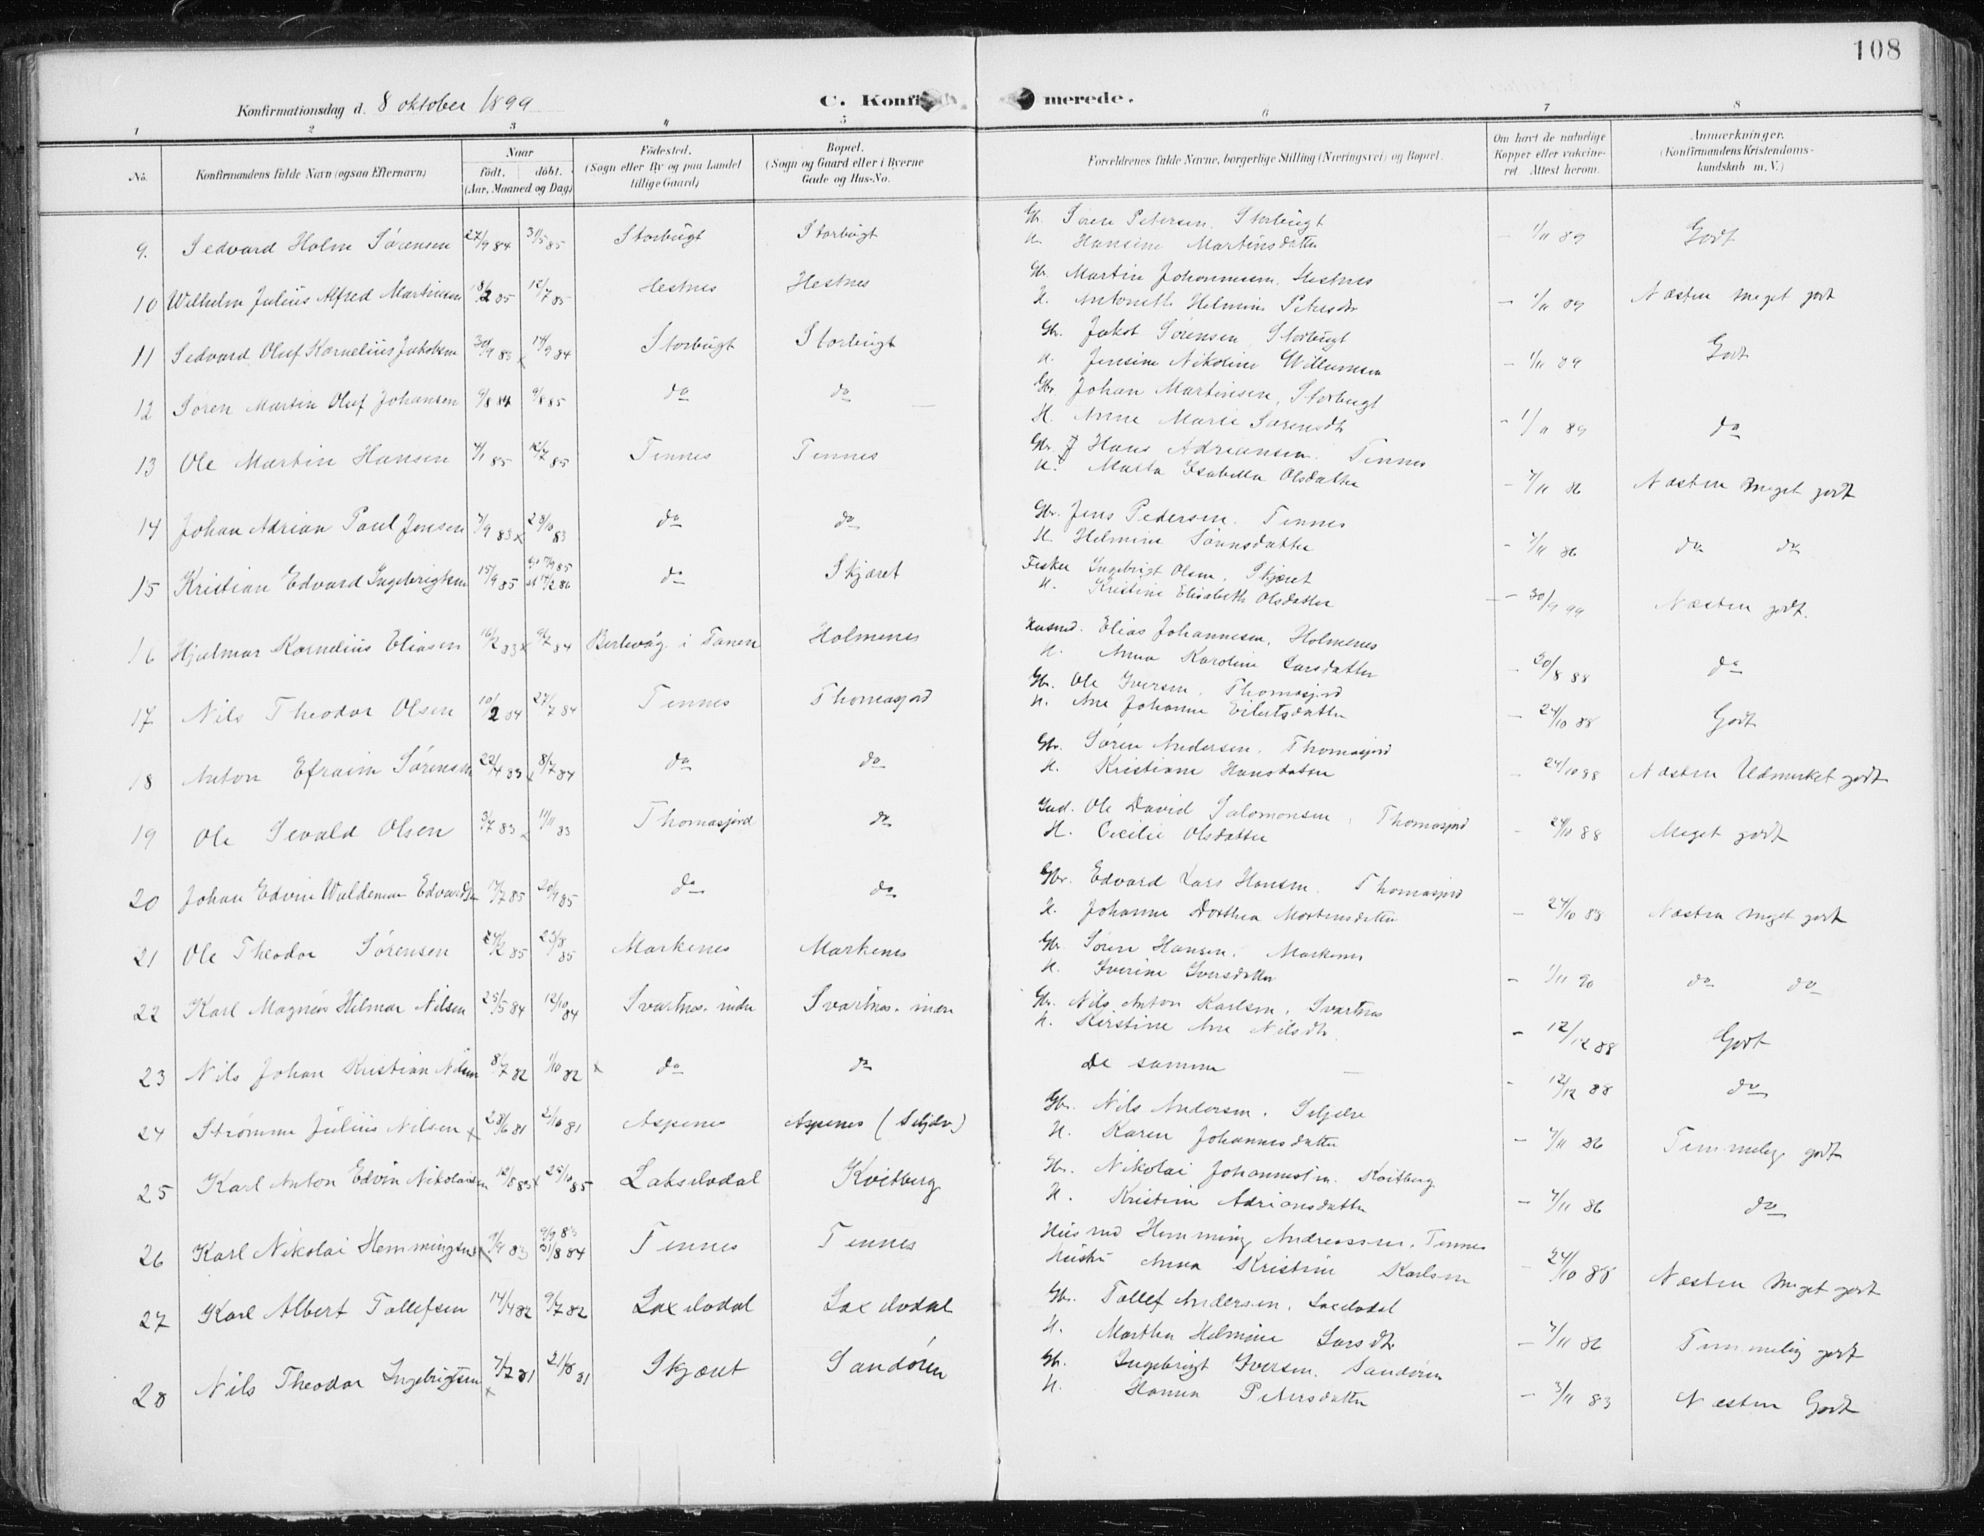 108
Konfirmationsdag d. 8 oktober 1899
C. Konfirmerede.
1 2 3 4 5 6 7 8
No. Konfirmandens fulde Navn (ogsaa Efternavn) Naar født. døbt. (Aar, Maaned og Dag) Fødested. (Sogn eller By og paa Landet tillige Gaard) Bopæl. (Sogn og Gaard eller i Byerne Gade og Hus-No. Forældrenes fulde Navne, borgerlige Stilling (Næringsvei) og Bopæl. Om havt de naturlige Kopper eller vakcineret Attest herom. Anmærkninger. (Konfirmandens Kristendomskundskab m. V.)
9. Sedvard Holm Sørensen 27/9 84 31/5 85 Storbugt Storbugt Gbr. Søren Petersen. Storbugt
H. Hansine Martinsdatter - 1/11 89 Godt
10 Wilhelm Julius Alfred Martinsen 18/2 85 12/7 85 Hestnes Hestnes Gbr. Martin Johannesen. Hestnes
H. Antonette Helmine Petersdtr - 1/11 89 Næsten meget godt
11 Sedvard Oluf Kornelius Jakobsen 30/9 83 x 14/9 84 Storbugt Storbugt Gbr. Jakob Sørensen, Storbugt
H. Jensine Nikoline Willumsen - 1/11 89 Godt
12 Søren Martin Oluf Johansen 9/8 84 9/8 85 do do Gbr. Johan Martinsen, Storbugt
H. Anne Marie Sørensdtr - 1/11 89 do
13 Ole Martin Hansen 4/1 85 12/7 85 Tennes Tennes Gbr. Hans Adriansen. Tennes
H. Malla Isabella Olsdatter - 7/11 86 Næsten meget godt
14 Johan Adrian Paul Jensen 7/9 83 x 28/10 83 do do Gbr. Jens Pedersen. Tennes
H. Helmine Sønnsdatter - 7/11 86 do do
15 Kristian Edvard Ingebrigtsen 15/9 85 17/9 85 17/2 86 do Skjæret Fisker Ingebrigt Olsen, Skjæret
H. Kristine Elisabeth Olsdatter - 30/9 99 Næsten godt.
16 Hjalmar Kornelius Eliasen 16/2 83 x 9/7 84 Berlevåg i Tanen Holmenes Husmd. Elias Johannesen, Holmenes
H. Anna Karoline Larsdatter - 30/8 88 do
17 Nils Theodor Olsen 10/2 84 27/7 84 Tennes Thomasjord Gbr. Ole Iversen, Thomasjord
H. Ane Johanne Eilertsdatter - 24/10 88 Godt
18 Anton Efraim Sørensen 22/4 83 x 8/7 84 do do Gbr. Søren Andersen. Thomasjord
H. Kristiane Hansdatter - 24/10 88 Næsten Udmerket godt
19 Ole Sevald Olsen 3/7 83 x 11/11 83 Thomasjord do Ole David Salomonsen, Thomasjord
H. Cecilie Olsdatter - 24/10 88 Meget godt
20 Johan Edvin Waldemar Edvardsen 17/7 85 20/9 85 do do Gbr. Edvard Lars Hansen. Thomasjord
H. Johanne Dorthea Mortensdatter - 24/10 88 Næsten meget godt
21 Ole Theodor Sørensen 24/2 85 23/8 85 Markenes Markenes Gbr. Søren Hansen. Markenes
H. Iverine Iversdatter - 1/11 90 do do
22 Karl Magnus Hilmar Nilsen 25/5 84 12/10 84 Svartnes. indre Svartnes. indre Gbr. Nils Anton Karlsen, Svartnes
H. Kirstine Ane Nilsdtr. - 12/12 88 Godt
23 Nils Johan Kristian Nilsen 8/7 82 1/10 82 x do do De samme - 12/12 88 do
24 Strømme Julius Nilsen x 28/6 81 2/10 81 Aspenes Aspenes (Seljelv.) Gbr. Nils Andersen. Seljelv
H. Karen Johannesdatter - 7/11 86 Temmelig godt
25 Karl Anton Edvin Nikolaisen 12/8 85 x 25/10 85 Lakselvdal Kvitberg Gbr. Nikolai Johannesen. Kvitberg
H. Kristine Adriansdatter - 7/11 86 do
26 Karl Nikolai Hemmingsen x 9/9 83 9/9 83 31/8 84 Tennes Tennes Husmd Hemming Andreassen. Tennes
Hustru Anna Kristine Karlsen - 24/10 88 Næsten meget godt
27 Karl Albert Tollefsen 14/4 82 9/7 82 Laxelvdal Laxelvdal Gbr. Tollef Andersen. Laxelvdal
H. Martha Helmine Larsdtr - 7/11 86 Temmelig godt
28 Nils Theodor Ingebrigtsen x 7/7 81 21/8 81 Skjæret Sandøren Gbr. Ingebrigt Iversen. Sandøren
H. Hanna Petersdatter - 3/11 83 Næsten Godt